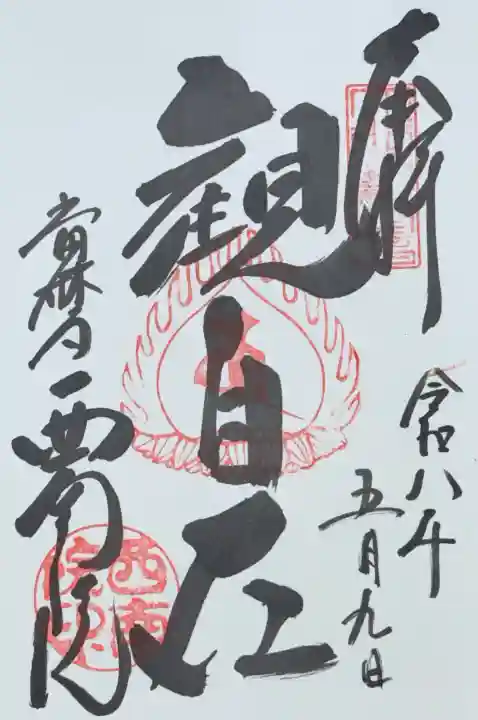 奉拝
令和八年
五月九日
観自在
當麻西南院